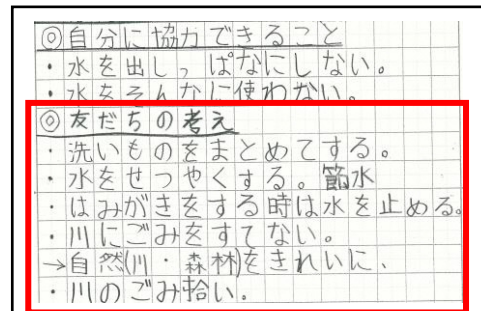 ◎自分に協力できること
・水を出しっぱなにしない。
・水をそんなに使わない。
◎友だちの考え
・洗いものをまとめてする。
・水をせつやくする。節水
・はみがきをする時は水を止める。
・川にごみをすてない。
→自然(川・森林)をきれいに、
・川のごみ拾い。